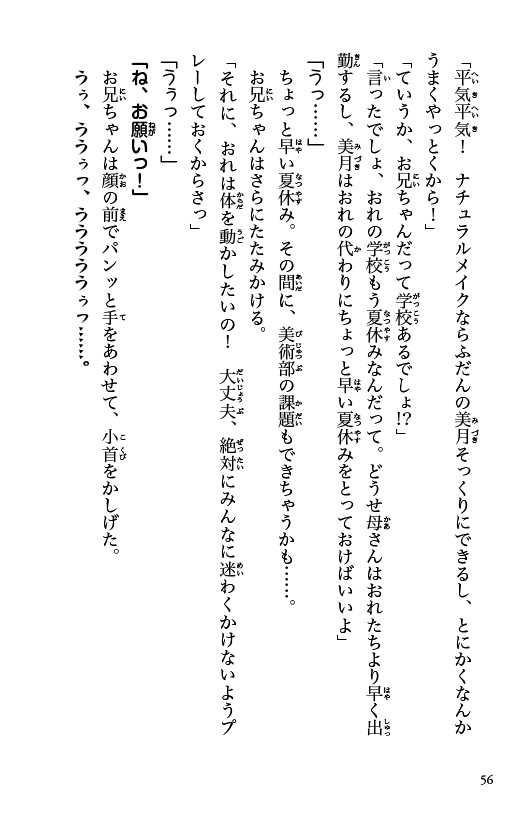 「平気平気！　ナチュラルメイクならふだんの美月そっくりにできるし、とにかくなんか
うまくやっとくから！」
「ていうか、お兄ちゃんだって学校あるでしょ!?」
「言ったでしょ、おれの学校もう夏休みなんだって。どうせ母さんはおれたちより早く出
勤するし、美月はおれの代わりにちょっと早い夏休みをとっておけばいいよ」
「うっ……」
ちょっと早い夏休み。その間に、美術部の課題もできちゃうかも……。
お兄ちゃんはさらにたたみかける。
「それに、おれは体を動かしたいの！　大丈夫、絶対にみんなに迷わくかけないようプ
レーしておくからさっ」
「うぅっ……」
「ね、お願いっ！」
お兄ちゃんは顔の前でパンッと手をあわせて、小首をかしげた。
うぅ、ううぅっ、うううううぅっ……。
56